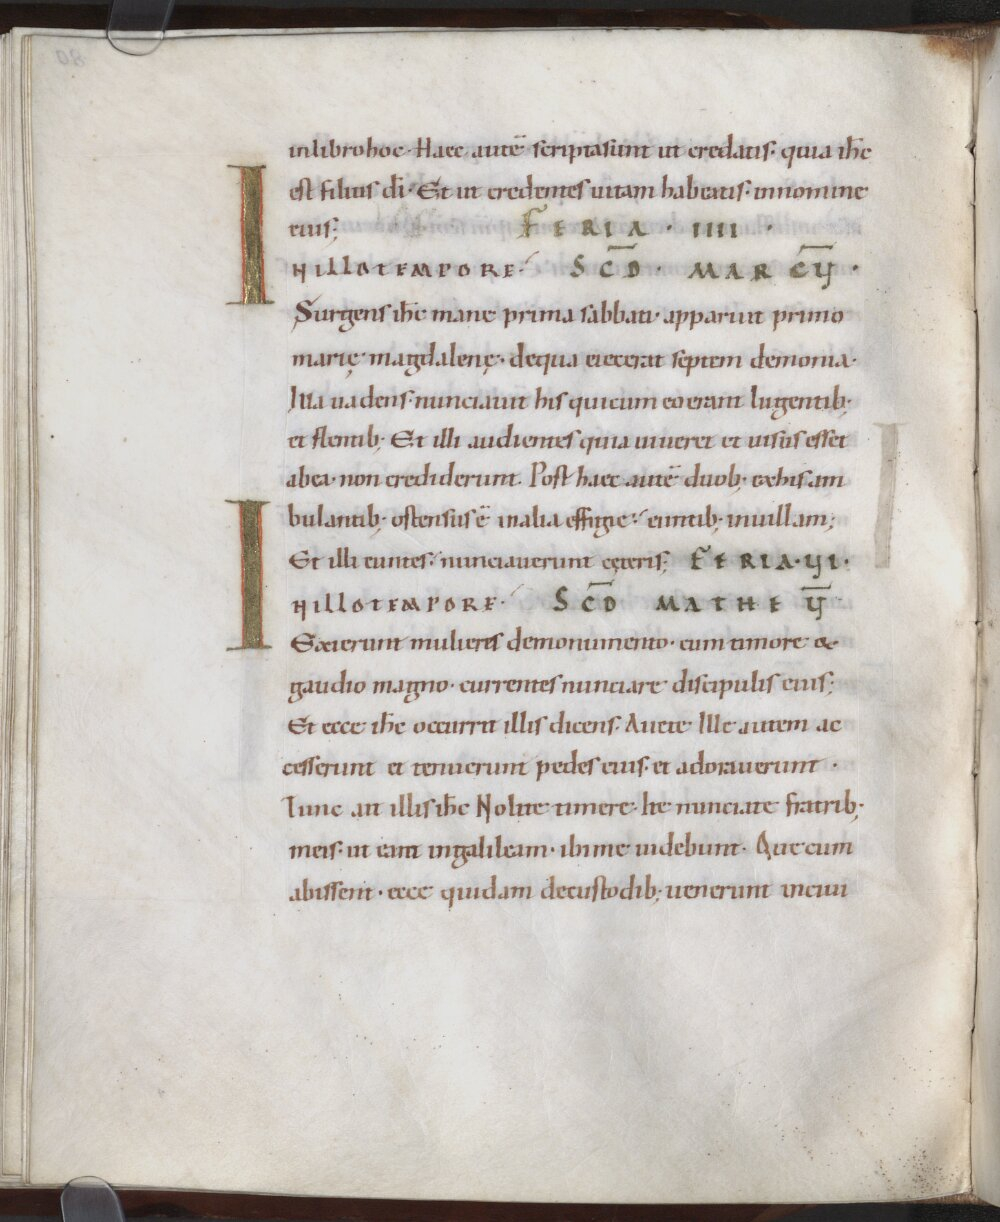 in libro hoc· Haec autē scripta sunt ut credatis· quia ih̄c
est filius dī· Et ut credentes uitam habeatis· in nomine
eius; FERIA · IIII ·
IN ILLO TEMPORE· SC̄D · MARCŪ ·
Surgens ih̄c mane prima sabbati· apparuit primo
marię magdalenę· de qua eiecerat septem demonia·
Illa uadens· nunciauit his qui cum eo erant lugentib;
et flentib; Et illi audientes quia uiueret et uisus esset
ab ea· non crediderunt. Post haec autē duob; ex his am
bulantib; ostensus ē in alia effigie· euntib; in uillam;
Et illi euntes· nunciauerunt cęteris; FERIA · VI ·
IN ILLO TEMPORE· SC̄D MATHEŪ ·
Exierunt mulieres de monumento· cum timore &
gaudio magno· currentes nunciare discipulis eius;
Et ecce ih̄c occurrit illis dicens· Auete Ille autem ac
cesserunt et tenuerunt pedes eius· et adorauerunt ·
Tunc ait illis ih̄c Nolite timere· Ite nunciate fratrib;
meis· ut eant in galileam· ibi me uidebunt· Que cum
abissent· ecce quidam de custodib; uenerunt in ciui